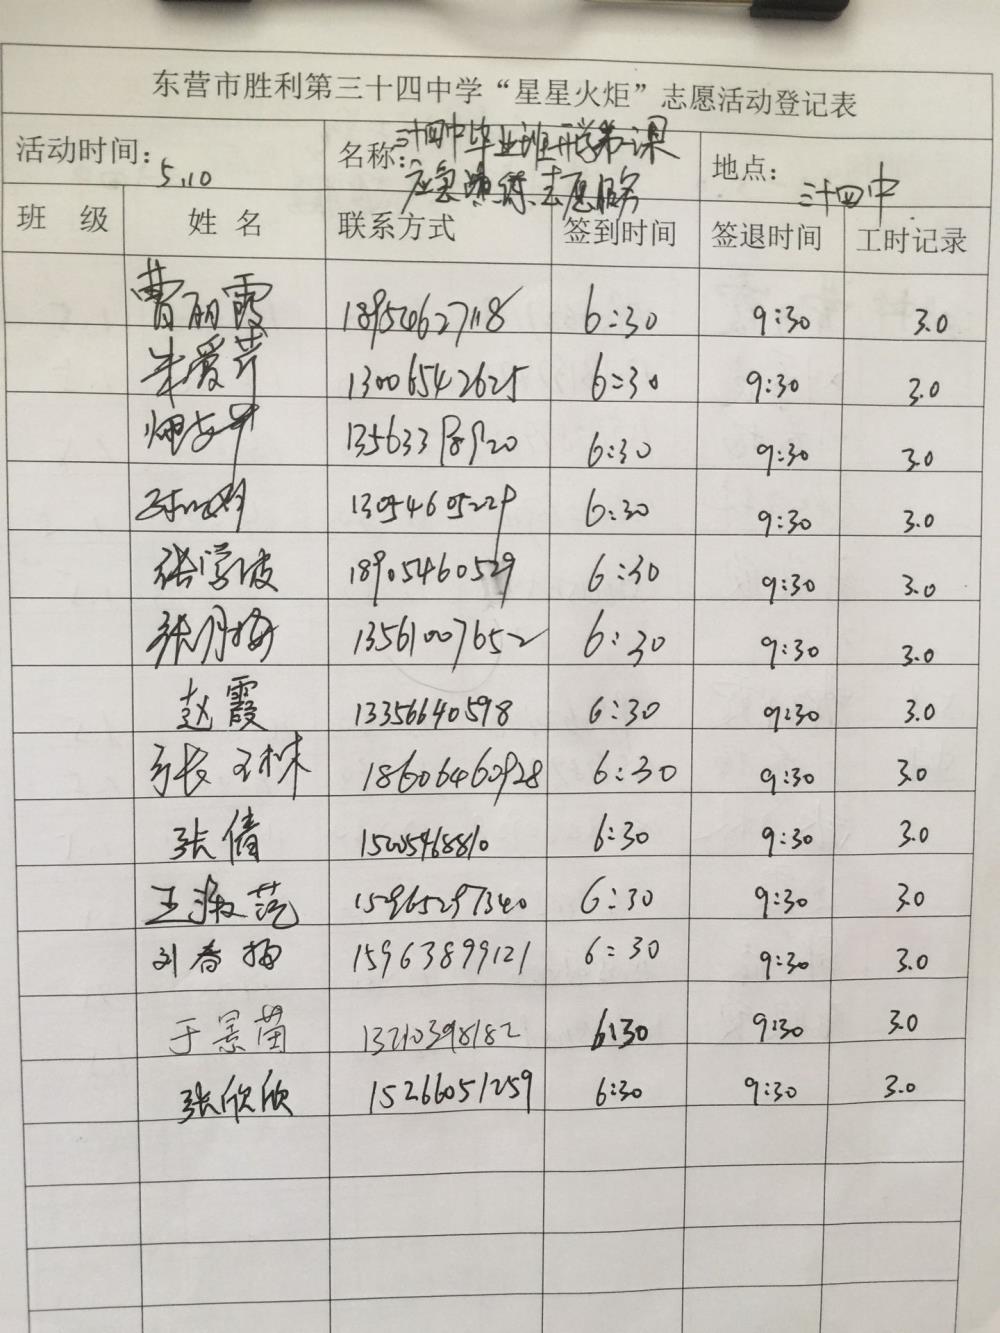 东营市胜利第三十四中学“星星火炬”志愿活动登记表
活动时间：5.10 名称：三十四中毕业班开学第一课 地点：三十四中
应急演练志愿服务
班 级 姓 名 联系方式 签到时间 签退时间 工时记录
曹丽霞 18954627118 6:30 9:30 3.0
朱爱芹 13006542625 6:30 9:30 3.0
13563389920 6:30 9:30 3.0
13054605229 6:30 9:30 3.0
张学波 18905460529 6:30 9:30 3.0
张月梅 13561007652 6:30 9:30 3.0
赵霞 13356640598 6:30 9:30 3.0
张玉林 18606460928 6:30 9:30 3.0
张倩 15205468810 6:30 9:30 3.0
王淑范 15965297340 6:30 9:30 3.0
刘春梅 15963899121 6:30 9:30 3.0
于景苗 13210398182 6:30 9:30 3.0
张欣欣 15266051259 6:30 9:30 3.0